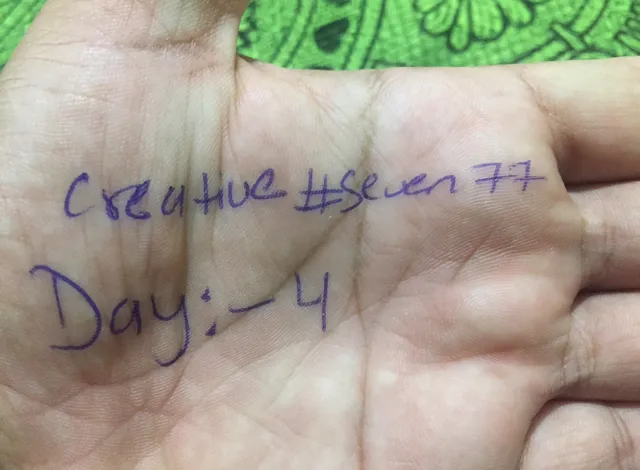 Creative #seven 77
Day:- 4